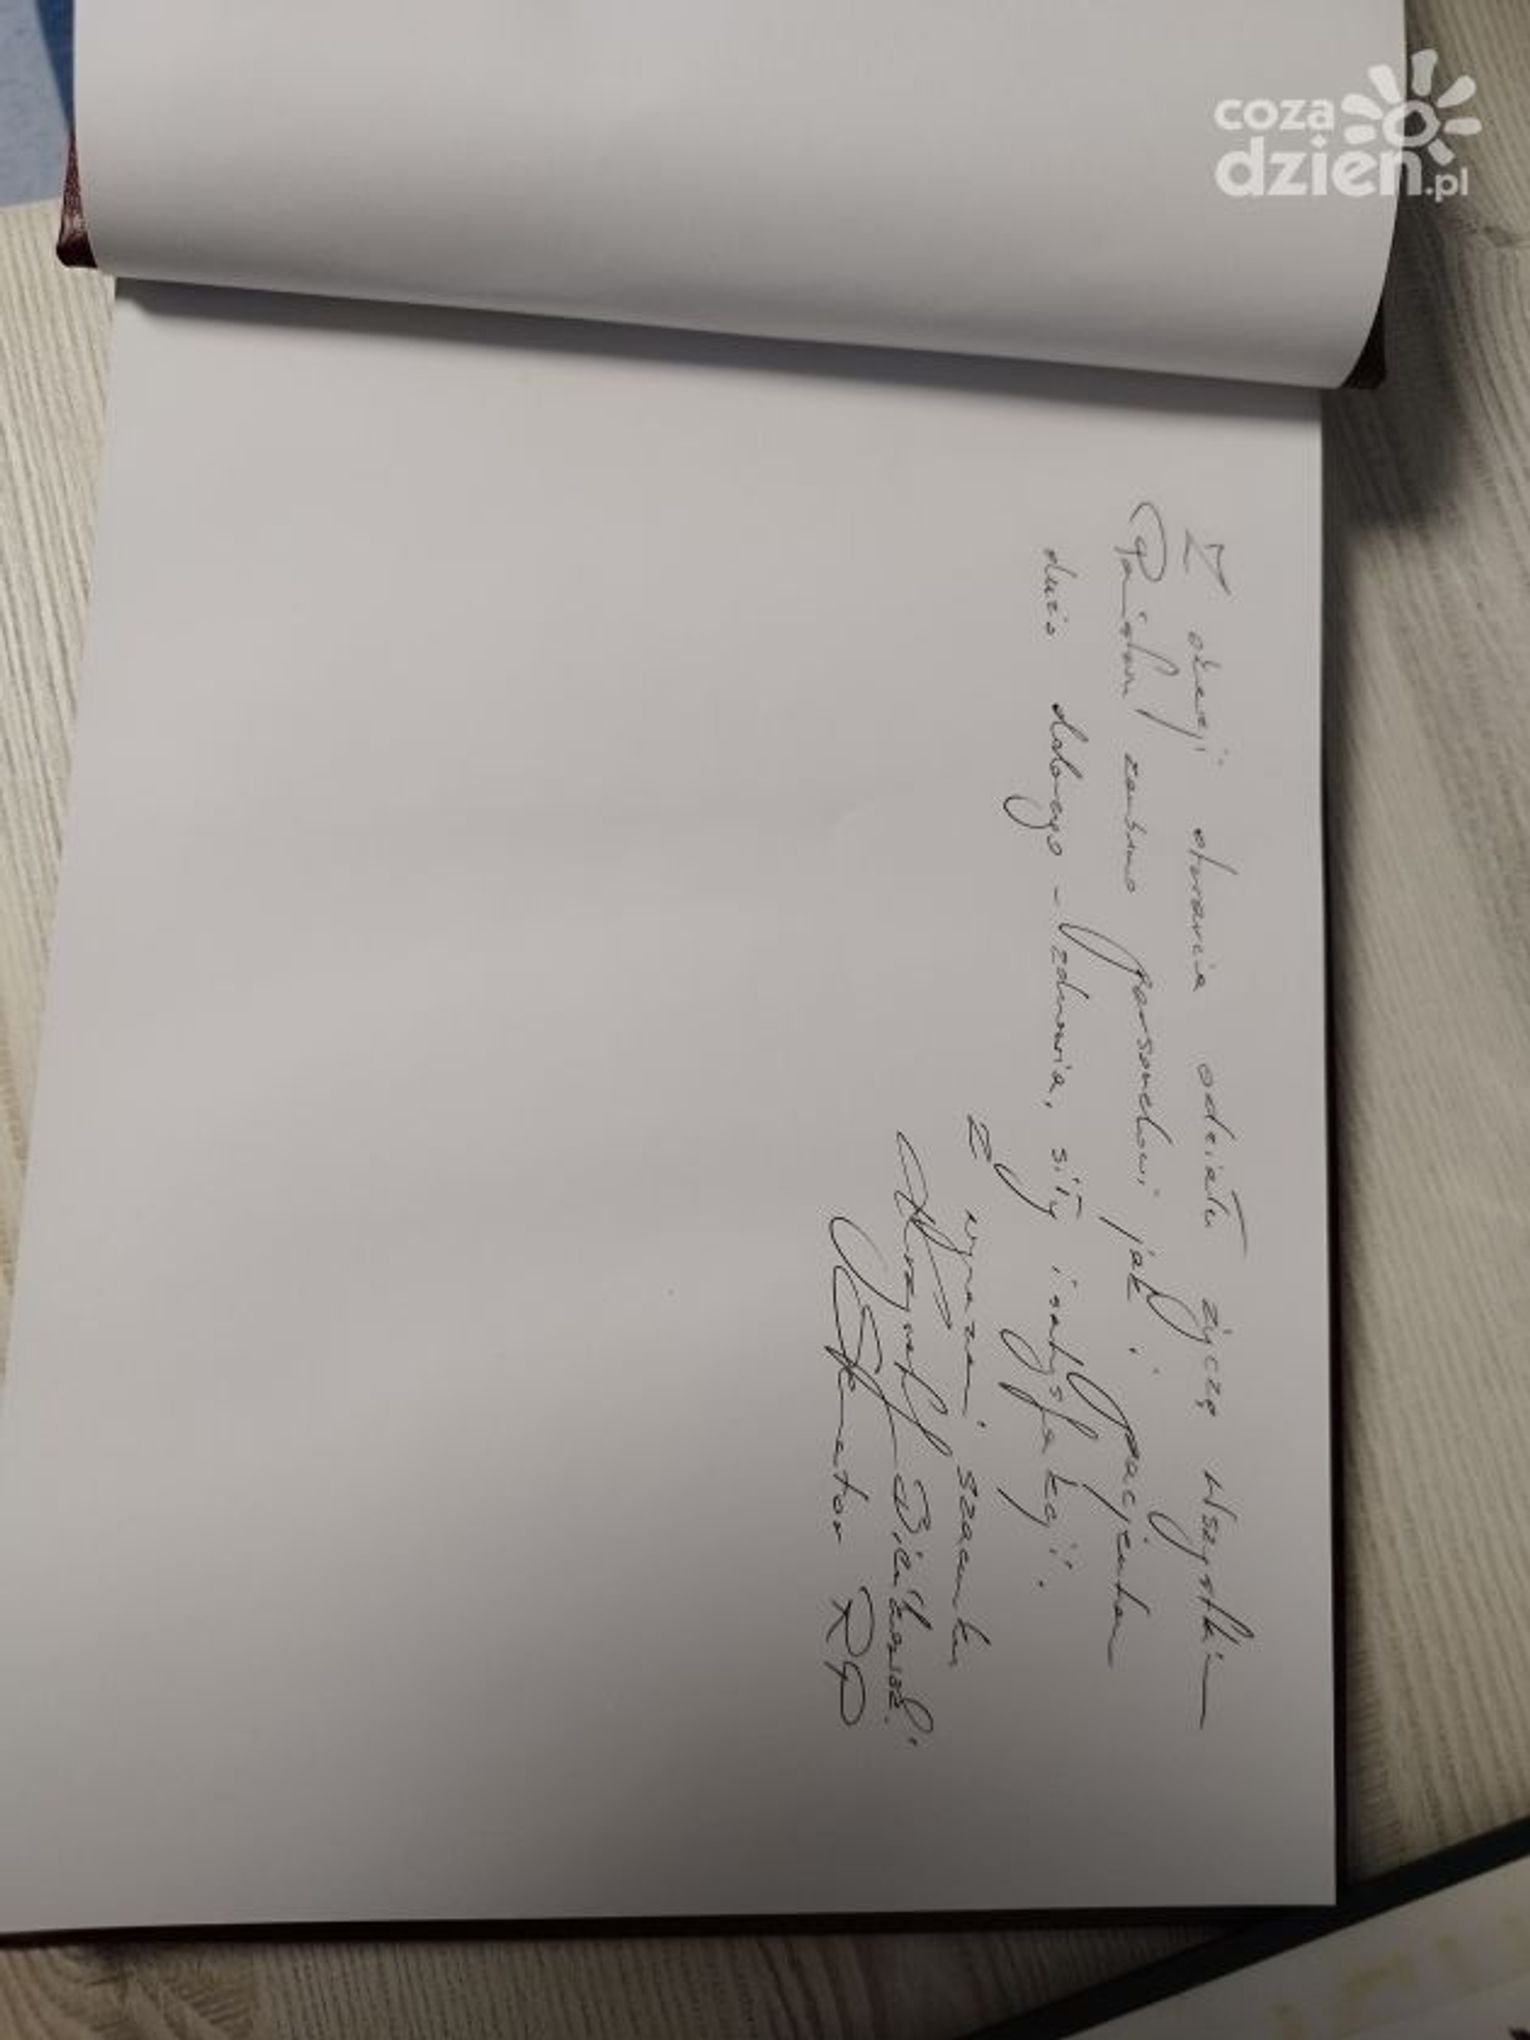 coza
dzien.pl
Z okazji otwarcia oddziału życzę wszystkim
Państwu zarówno personelowi jak i pacjentom
dużo dobrego - zdrowia, siły i satysfakcji.
Z wyrazami szacunku
Bieńkowski
Senator RP